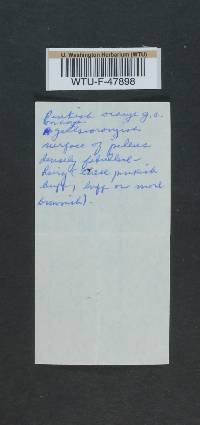 U. Washington Herbarium (WTU)
WTU-F-47898
Pinkish orange g.s.
surface of pileus
densely fibrillose-
hairy (these pinkish
buff, buff or more
brownish).